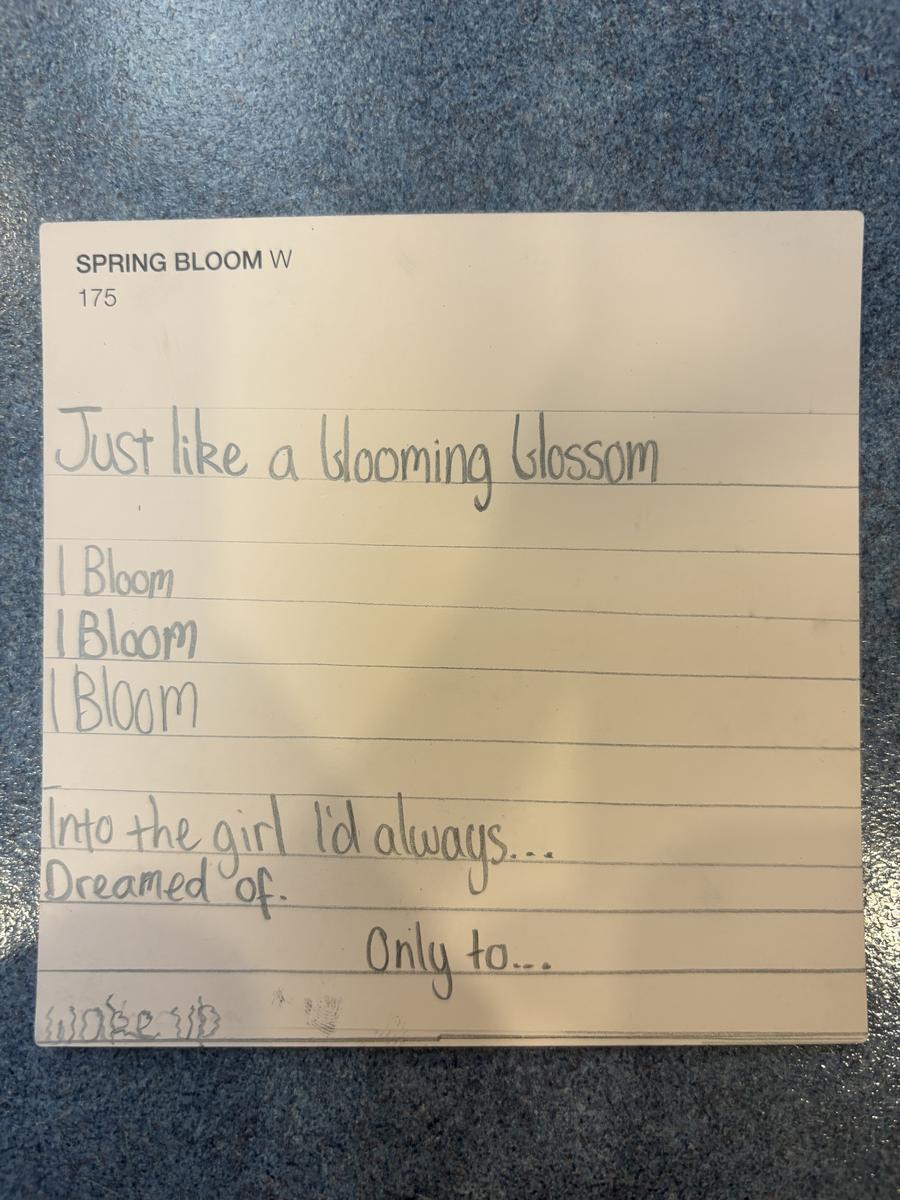 SPRING BLOOM W
175
Just like a blooming blossom
I Bloom
I Bloom
I Bloom
Into the girl I'd always...
Dreamed of.
Only to...
wake up